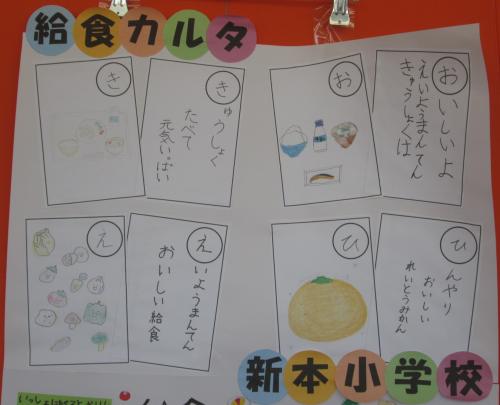 給食カルタ
き
きゅうしょく
たべて
元気いっぱい
お
おいしいよ
えいようまんてん
きゅうしょくは
え
えいようまんてん
おいしい給食
ひ
ひんやり
おいしい
れいとうみかん
新本小学校